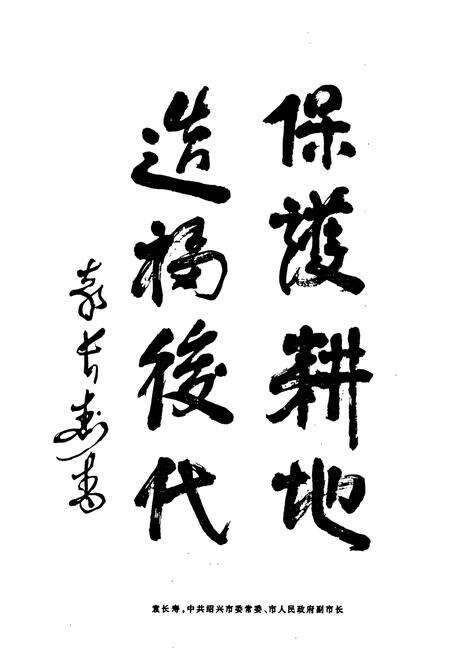 保護耕地
造福後代
袁长寿书
袁长寿，中共绍兴市委常委、市人民政府副市长